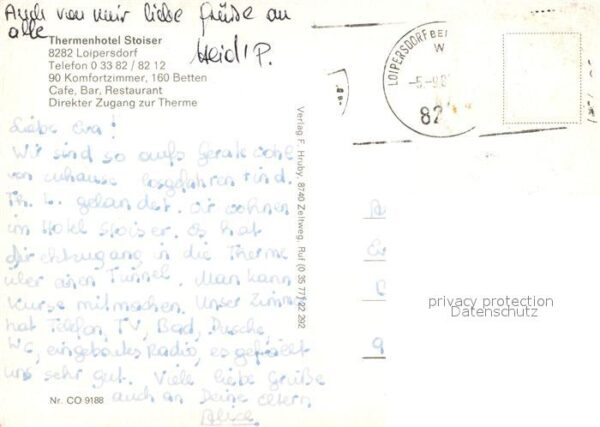 Auch von mir liebe Grüße an
alle
Heidi P.
Thermenhotel Stoiser
8282 Loipersdorf
Telefon 0 33 82 / 82 12
90 Komfortzimmer, 160 Betten
Cafe, Bar, Restaurant
Direkter Zugang zur Therme
LOIPERSDORF BEI
82
Liebe Eva!
Wir sind so aufs Geratewohl
von zuhause losgefahren + ind.
Th. L. gelandet. Wir wohnen
im Hotel Stoiser. Es hat
direktzugang in die Therme
über einen Tunnel. Man kann
Kurse mitmachen. Unser Zimmer
hat Telefon, TV, Bad, Dusche,
WC, eingebautes Radio, es gefällt
uns sehr gut. Viele liebe Grüße
auch an Deine Eltern
Alice
Verlag F. Hruby, 8740 Zeltweg, Ruf (0 35 77) 22 292
Nr. CO 9188
privacy protection
Datenschutz